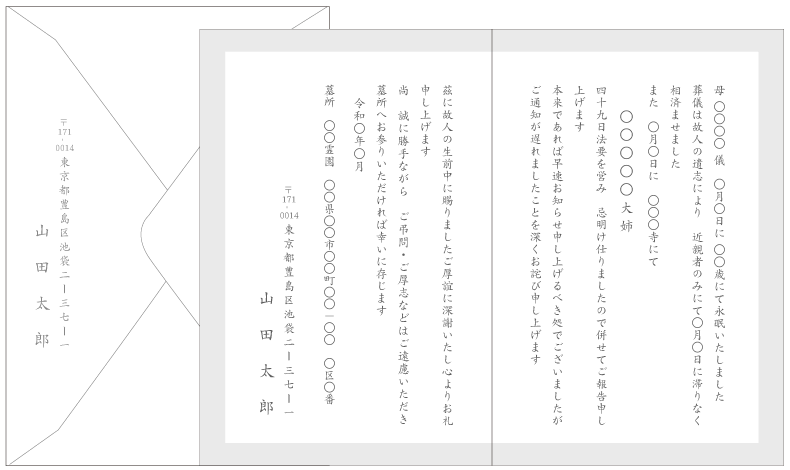 母 〇〇〇〇 儀 〇月〇日に 〇〇歳にて永眠いたしました
葬儀は故人の遺志により 近親者のみにて〇月〇日に滞りなく
相済ませました
また 〇月〇日に 〇〇〇寺にて
〇〇〇〇〇大姉
四十九日法要を営み 忌明け仕りましたので併せてご報告申し
上げます
本来であれば早速お知らせ申し上げるべき処でございましたが
ご通知が遅れましたことを深くお詫び申し上げます
茲に故人の生前中に賜りましたご厚誼に深謝いたし心よりお礼
申し上げます
尚 誠に勝手ながら ご弔問・ご厚志などはご遠慮いただき
墓所へお参りいただければ幸いに存じます
令和〇年〇月
墓所 〇〇霊園 〇〇県〇〇市〇〇町〇〇―〇〇 〇区〇番
〒171-0014 東京都豊島区池袋二ー三七ー一
山田太郎
〒171-0014 東京都豊島区池袋二ー三七ー一
山田太郎